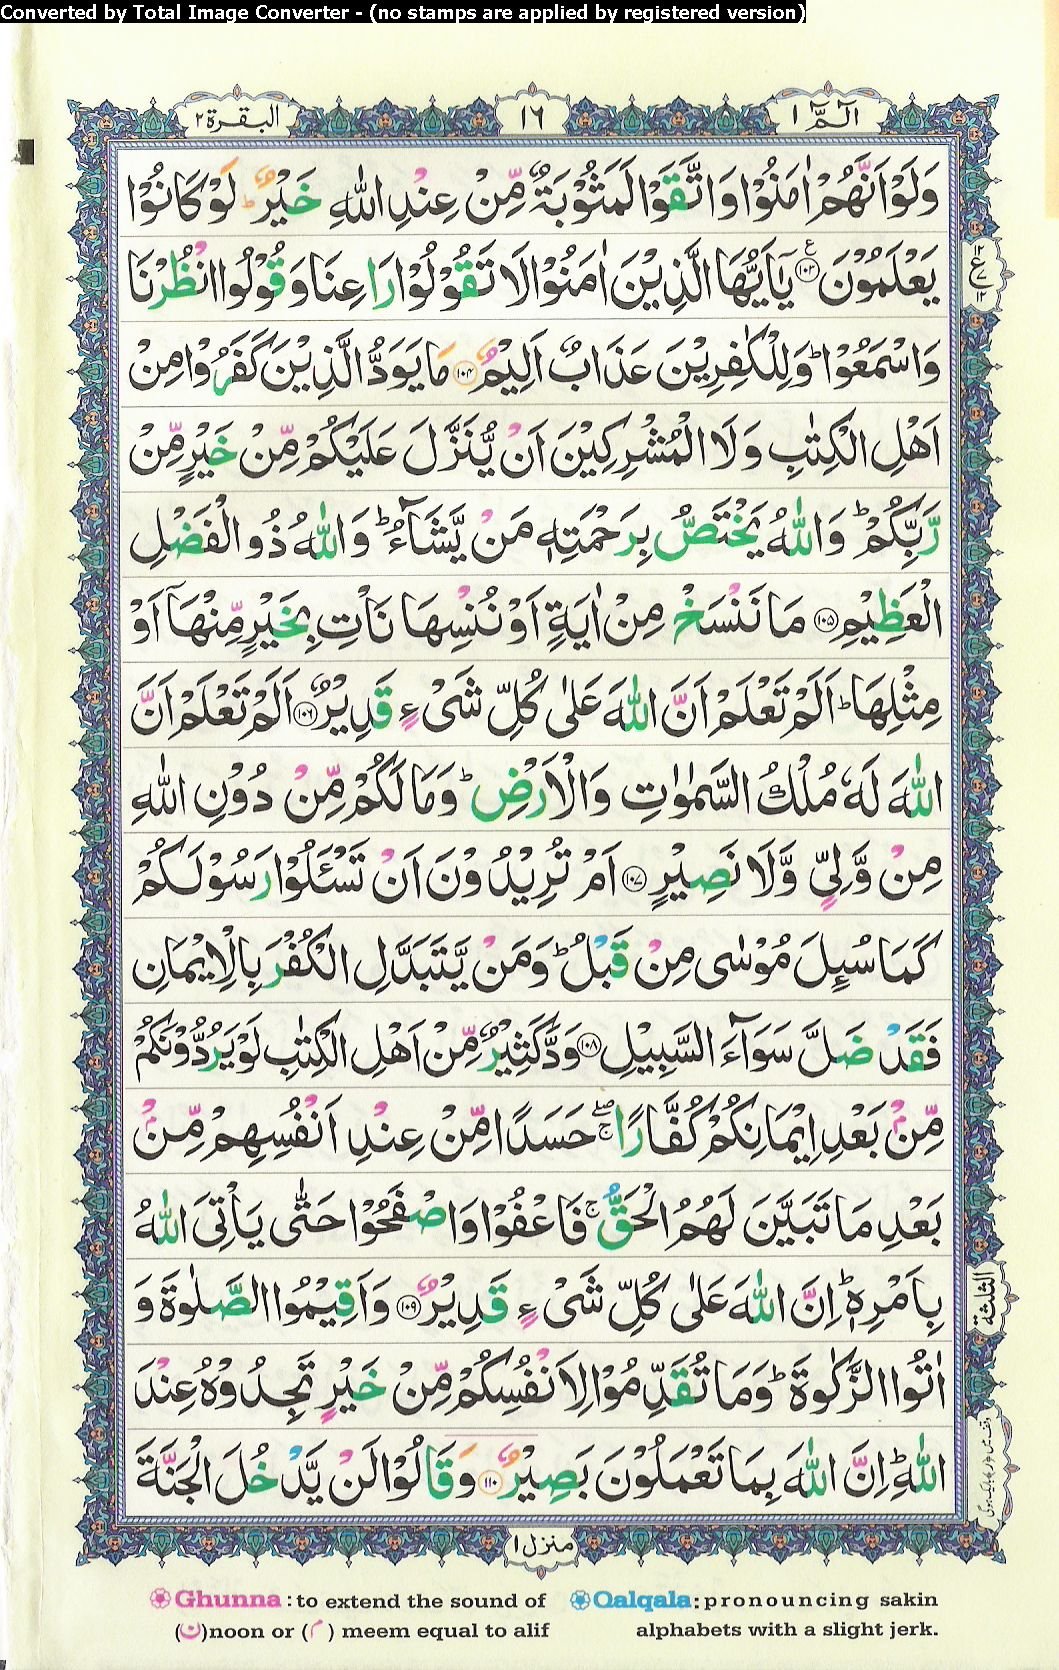 Converted by Total Image Converter - (no stamps are applied by registered version)
الٓمّٓ ١
١٦
البقرة ٢
وَلَوْ اَنَّهُمْ اٰمَنُوْا وَاتَّقَوْا لَمَثُوْبَةٌ مِّنْ عِنْدِ اللّٰهِ خَيْرٌ ؕ لَوْ كَانُوْا
يَعْلَمُوْنَ ۱۰۳ يٰۤاَيُّهَا الَّذِيْنَ اٰمَنُوْا لَا تَقُوْلُوْا رَاعِنَا وَقُوْلُوا انْظُرْنَا
وَاسْمَعُوْا ؕ وَلِلْكٰفِرِيْنَ عَذَابٌ اَلِيْمٌ ۱۰۴ مَا يَوَدُّ الَّذِيْنَ كَفَرُوْا مِنْ
اَهْلِ الْكِتٰبِ وَلَا الْمُشْرِكِيْنَ اَنْ يُّنَزَّلَ عَلَيْكُمْ مِّنْ خَيْرٍ مِّنْ
رَّبِّكُمْ ؕ وَاللّٰهُ يَخْتَصُّ بِرَحْمَتِهٖ مَنْ يَّشَآءُ ؕ وَاللّٰهُ ذُو الْفَضْلِ
الْعَظِيْمِ ۱۰۵ مَا نَنْسَخْ مِنْ اٰيَةٍ اَوْ نُنْسِهَا نَاْتِ بِخَيْرٍ مِّنْهَآ اَوْ
مِثْلِهَا ؕ اَلَمْ تَعْلَمْ اَنَّ اللّٰهَ عَلٰى كُلِّ شَىْءٍ قَدِيْرٌ ۱۰۶ اَلَمْ تَعْلَمْ اَنَّ
اللّٰهَ لَهٗ مُلْكُ السَّمٰوٰتِ وَالْاَرْضِ ؕ وَمَا لَكُمْ مِّنْ دُوْنِ اللّٰهِ
مِنْ وَّلِيٍّ وَّلَا نَصِيْرٍ ۱۰۷ اَمْ تُرِيْدُوْنَ اَنْ تَسْـَٔلُوْا رَسُوْلَكُمْ
كَمَا سُئِلَ مُوْسٰى مِنْ قَبْلُ ؕ وَمَنْ يَّتَبَدَّلِ الْكُفْرَ بِالْاِيْمَانِ
فَقَدْ ضَلَّ سَوَآءَ السَّبِيْلِ ۱۰۸ وَدَّ كَثِيْرٌ مِّنْ اَهْلِ الْكِتٰبِ لَوْ يَرُدُّوْنَكُمْ
مِّنْۢ بَعْدِ اِيْمَانِكُمْ كُفَّارًا ۚۖ حَسَدًا مِّنْ عِنْدِ اَنْفُسِهِمْ مِّنْۢ
بَعْدِ مَا تَبَيَّنَ لَهُمُ الْحَقُّ ۚ فَاعْفُوْا وَاصْفَحُوْا حَتّٰى يَاْتِىَ اللّٰهُ
بِاَمْرِهٖ ؕ اِنَّ اللّٰهَ عَلٰى كُلِّ شَىْءٍ قَدِيْرٌ ۱۰۹ وَاَقِيْمُوا الصَّلٰوةَ وَ
اٰتُوا الزَّكٰوةَ ؕ وَمَا تُقَدِّمُوْا لِاَنْفُسِكُمْ مِّنْ خَيْرٍ تَجِدُوْهُ عِنْدَ
اللّٰهِ ؕ اِنَّ اللّٰهَ بِمَا تَعْمَلُوْنَ بَصِيْرٌ ۱۱۰ وَقَالُوْا لَنْ يَّدْخُلَ الْجَنَّةَ
الثلثة
منزل ١
Ghunna : to extend the sound of
(ن)noon or (م) meem equal to alif
Qalqala: pronouncing sakin
alphabets with a slight jerk.